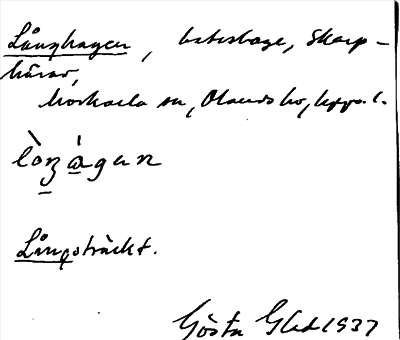 Långhagen, beteshage, Skarp-
kärar,
Morkarla sn, Olands hd, Upps. l.
lòŋágun
Långsträckt.
Gösta Glad 1937